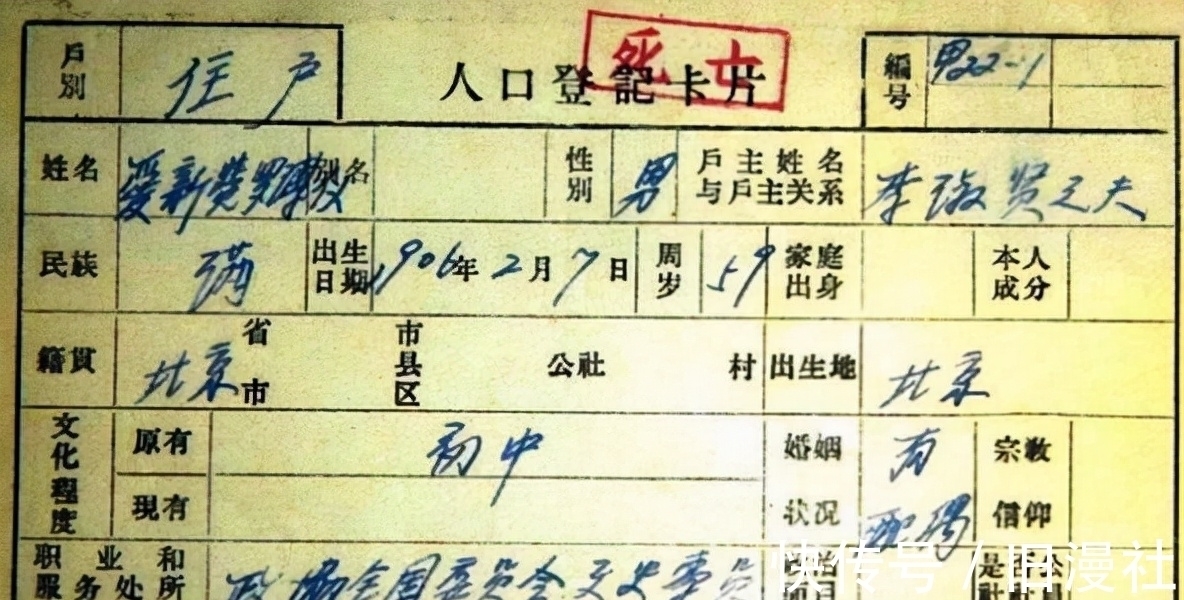 戶別 住戶 人口登記卡片 死亡 編号 男22-1
姓名 爱新觉罗溥仪 别名 性別 男 戶主姓名与戶主关系 李淑贤之夫
民族 满 出生日期 1906年2月7日 周岁 59 家庭出身 本人成分
籍贯 北京 省市 市县区 公社 村 出生地 北京
文化程度 原有 初中 婚姻状况 有配偶 宗教信仰
現有
职业和服务处所 政协全国委员会文史专员
快传号/旧漫社